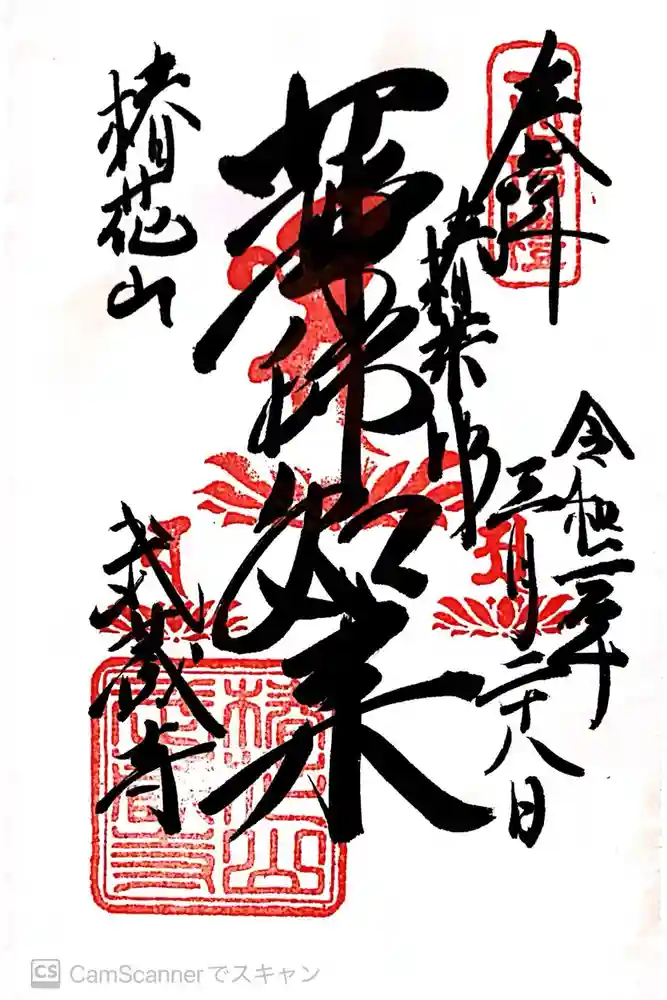 奉拝
令和三年
三月二十八日
薬師如来
椿花山
武蔵寺
椿花山
武蔵寺
CS CamScannerでスキャン